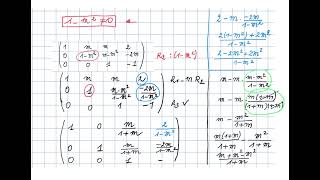 1 - m² ≠ 0
1 m m 2
0 1-m² m-m² -2m
0 0 1 -1
R₂ : (1-m²)
1 m m 2
0 1 m-m²/1-m² -2m/1-m²
0 0 1 -1
R₁ - m R₂
R₃ ✓
1 0 m/1+m 2/1-m²
0 1 m/1+m -2m/1-m²
0 0 1 -
2 - m · -2m/1-m²
2(1-m²)+2m²/1-m²
2-2m²+2m²/1-m²
m - m · m-m²/1-m²
m - m · m(1-m)/(1-m)(1+m)
m - m²/1+m
m(1+m)/1+m - m²/1+m
m+m²-m²/1+m